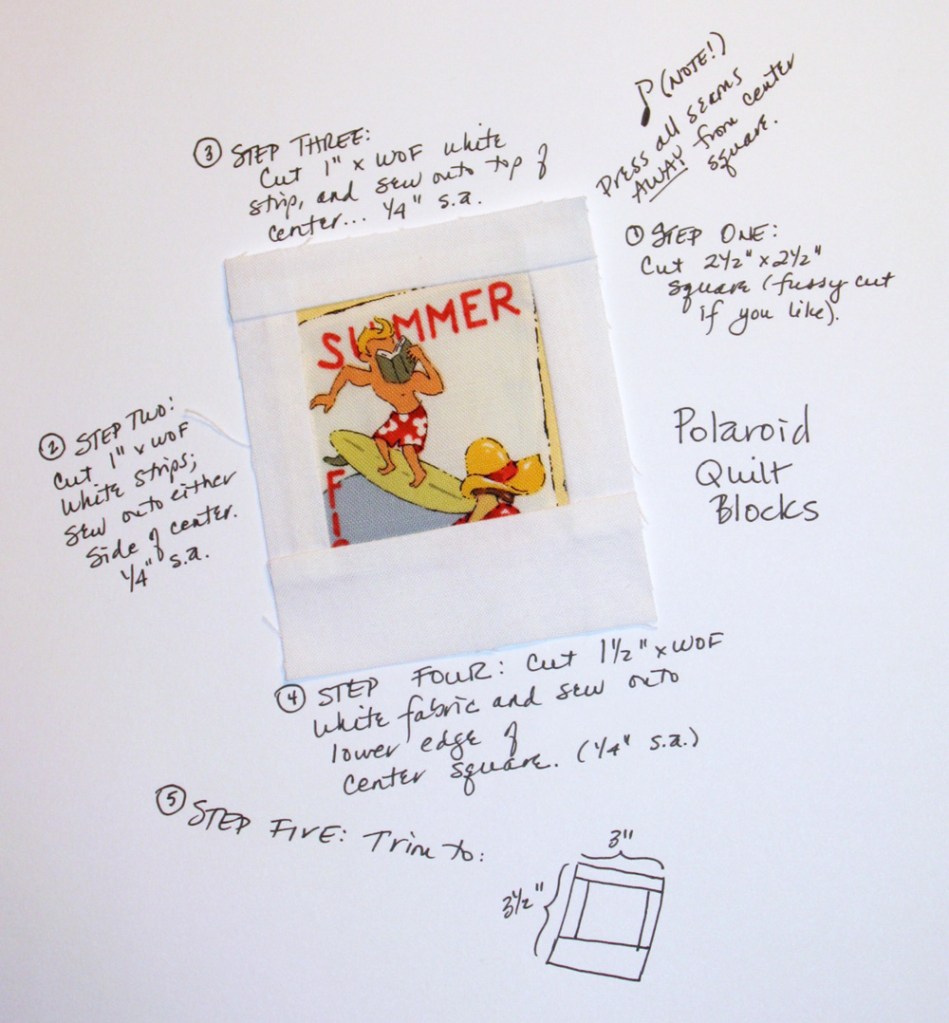 ♪ (NOTE!)
Press all seams
AWAY from center
square.
① STEP ONE:
Cut 2½" x 2½"
square (fussy cut
if you like).
② STEP TWO:
Cut 1" x WOF
white strips;
sew onto either
side of center.
¼" s.a.
③ STEP THREE:
Cut 1" x WOF white
strip, and sew onto top of
center... ¼" s.a.
SUMMER
F
Polaroid
Quilt
Blocks
④ STEP FOUR: Cut 1½" x WOF
white fabric and sew onto
lower edge of
center square. (¼" s.a.)
⑤ STEP FIVE: Trim to:
3"
3½"